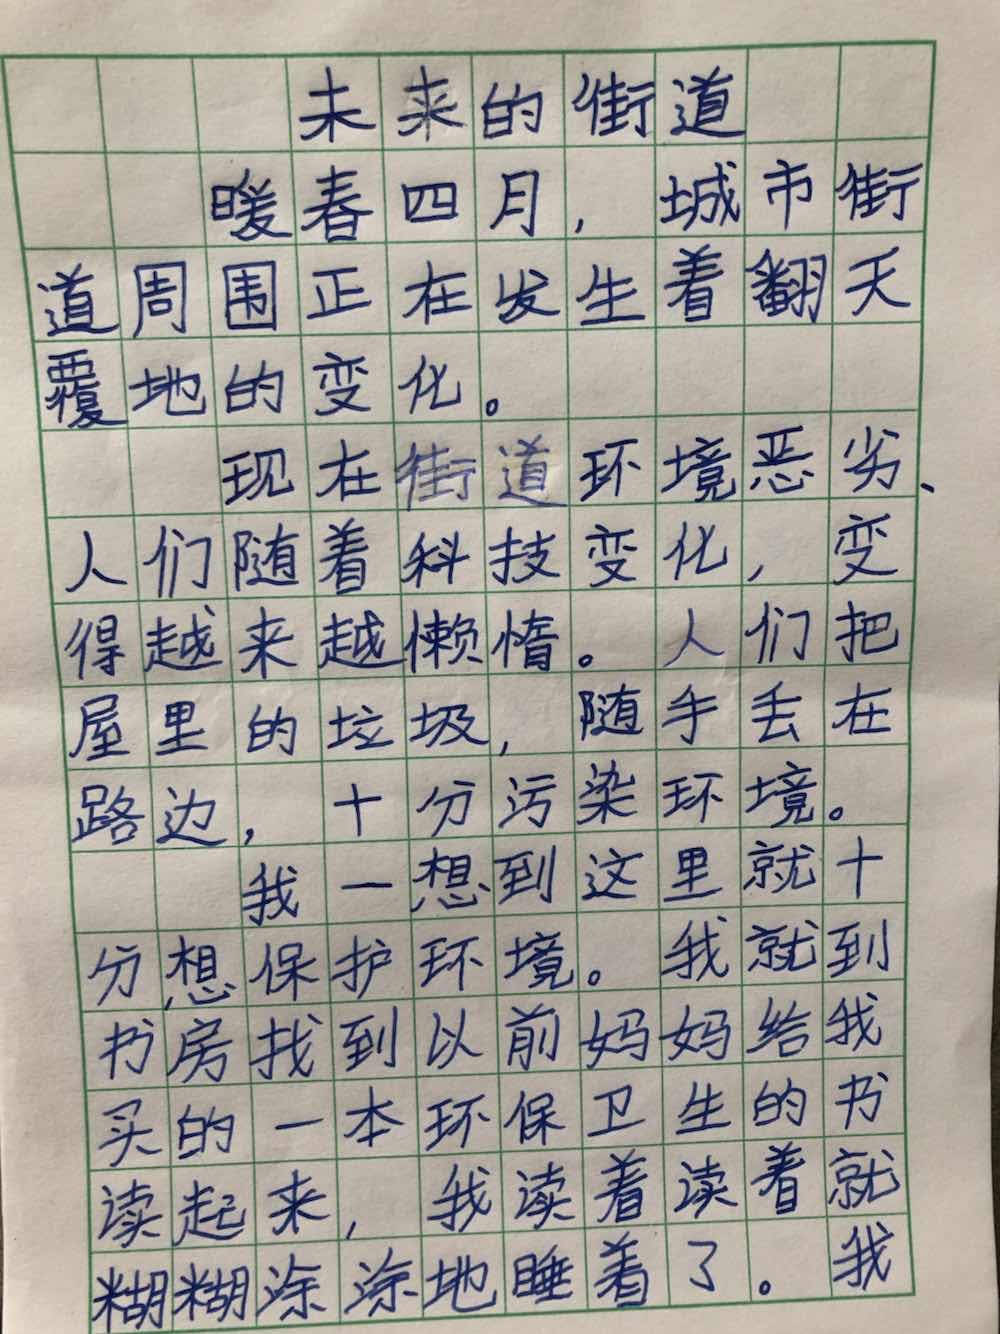 未来的街道
暖春四月，城市街
道周围正在发生着翻天
覆地的变化。
现在街道环境恶劣、
人们随着科技变化，变
得越来越懒惰。人们把
屋里的垃圾，随手丢在
路边，十分污染环境。
我一想到这里就十
分想保护环境。我就到
书房找到以前妈妈给我
买的一本环保卫生的书
读起来，我读着读着就
糊糊涂涂地睡着了。我